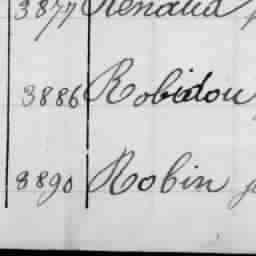 3877 Renaud
3886 Robidou
3890 Robin